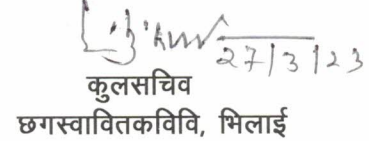 27/3/23
कुलसचिव
छगस्वावितकविवि, भिलाई